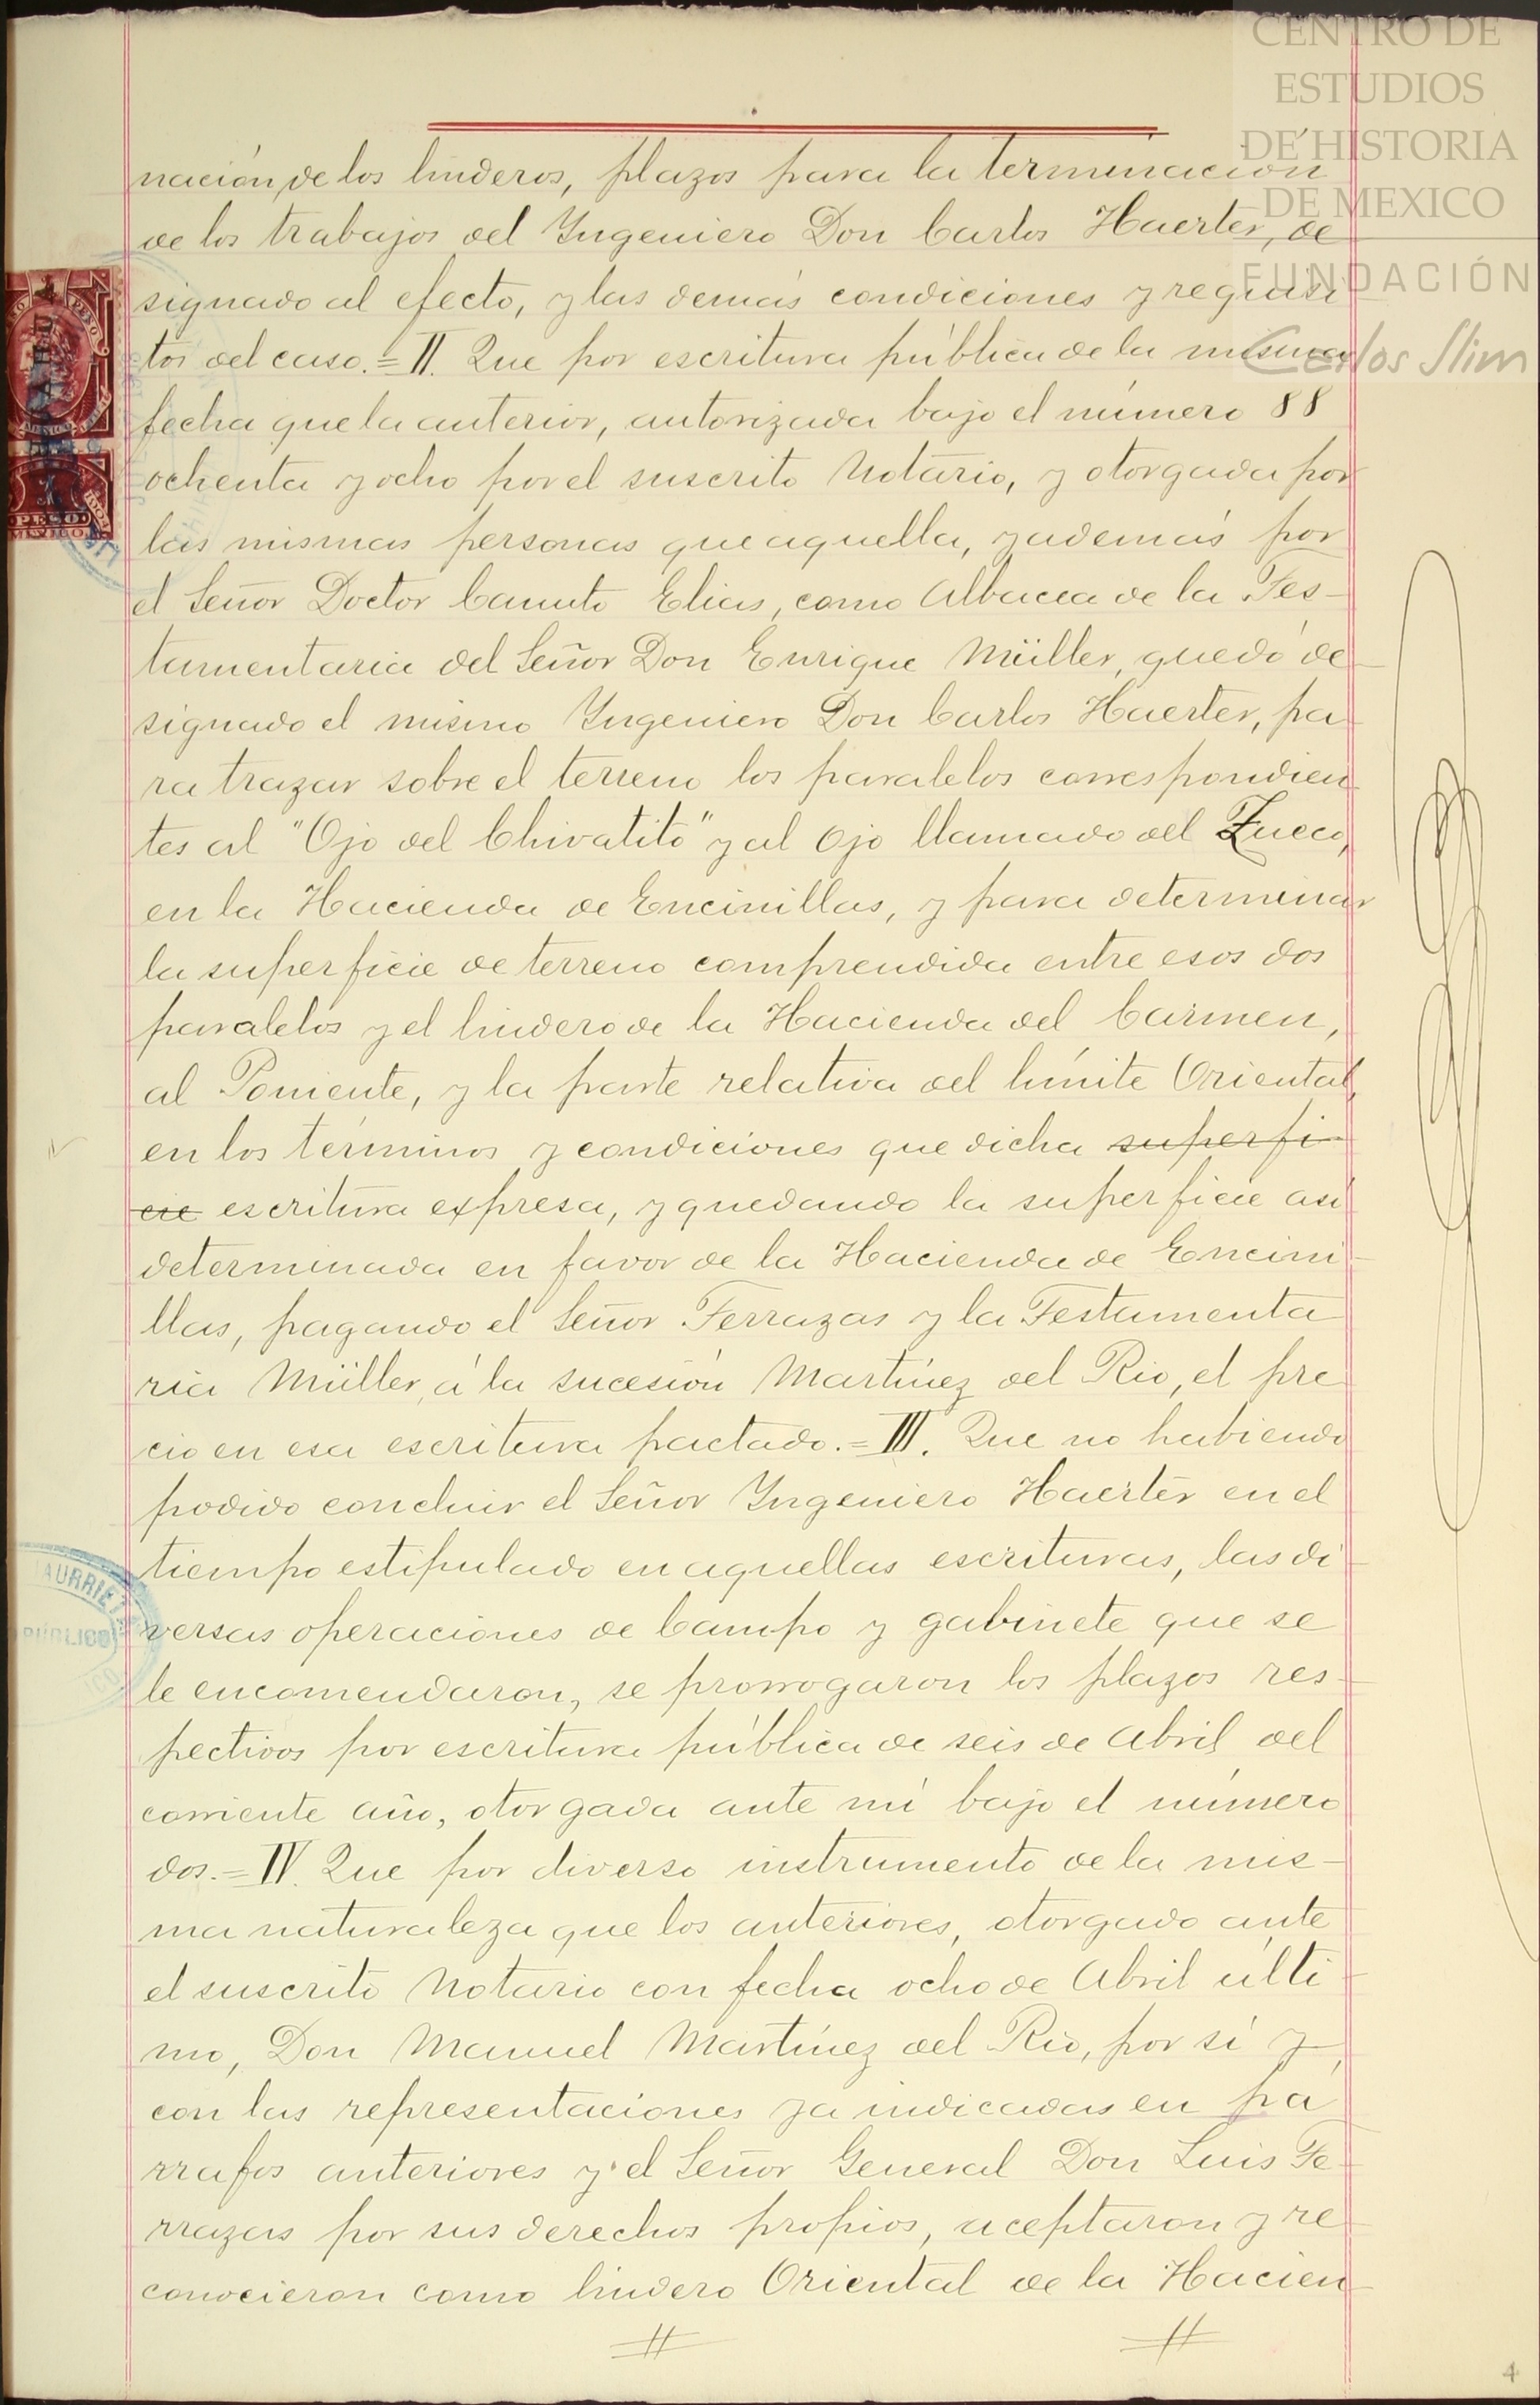 CENTRO DE
ESTUDIOS
DE HISTORIA
DE MEXICO
FUNDACIÓN
Carlos Slim
nación, de los linderos, plazos para la terminación
de los trabajos del Yngeniero Don Carlos Haerter, de
signado al efecto, y las demás condiciones y requisi
tos del caso.= II. Que por escritura pública de la misma
fecha que la anterior, autorizada bajo el número 88
ochenta y ocho por el suscrito Notario, y otorgada por
las mismas personas que aquella, y además por
el Señor Doctor Canuto Elias, como Albacea de la Tes-
tamentaria del Señor Don Enrique Müller, quedó de-
signado el mismo Yngeniero Don Carlos Haerter, pa-
ra trazar sobre el terreno los paralelos correspondien
tes al "Ojo del Chivatito" y al Ojo llamado del Zueco,
en la Hacienda de Encinillas, y para determinar
la superficie de terreno comprendida entre esos dos
paralelos y el lindero de la Hacienda del Carmen,
al Poniente, y la parte relativa del límite Oriental,
en los términos y condiciones que dicha superfi-
cie escritura expresa, y quedando la superficie así
determinada en favor de la Hacienda de Encini-
llas, pagando el Señor Terrazas y la Testamenta
ria Müller, á la sucesión Martínez del Rio, el pre
cio en esa escritura pactado.= III. Que no habiendo
podido concluir el Señor Yngeniero Haerter en el
tiempo estipulado en aquellas escrituras, las di-
versas operaciones de Campo y gabinete que se
le encomendaron, se prorrogaron los plazos res-
pectivos por escritura pública de seis de Abril del
corriente año, otorgada ante mí bajo el número
dos.= IV. Que por diverso instrumento de la mis-
ma naturaleza que los anteriores, otorgado ante
el suscrito Notario con fecha ocho de Abril últi-
mo, Don Manuel Martínez del Rio, por sí y
con las representaciones ya indicadas en pá
rrafos anteriores y el Señor General Don Luis Te-
rrazas por sus derechos propios, aceptaron y re
conocieron como lindero Oriental de la Hacien-
PESO
MEXICO
AURRIET
PÚBLICO
4